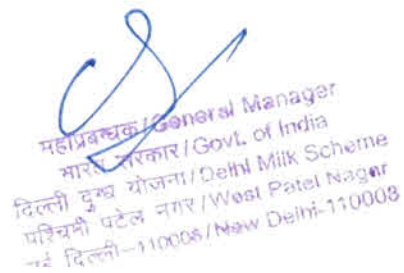 महाप्रबन्धक/General Manager
भारत सरकार/Govt. of India
दिल्ली दुग्ध योजना/Delhi Milk Scheme
पश्चिमी पटेल नगर/West Patel Nagar
नई दिल्ली-110008/New Delhi-110008